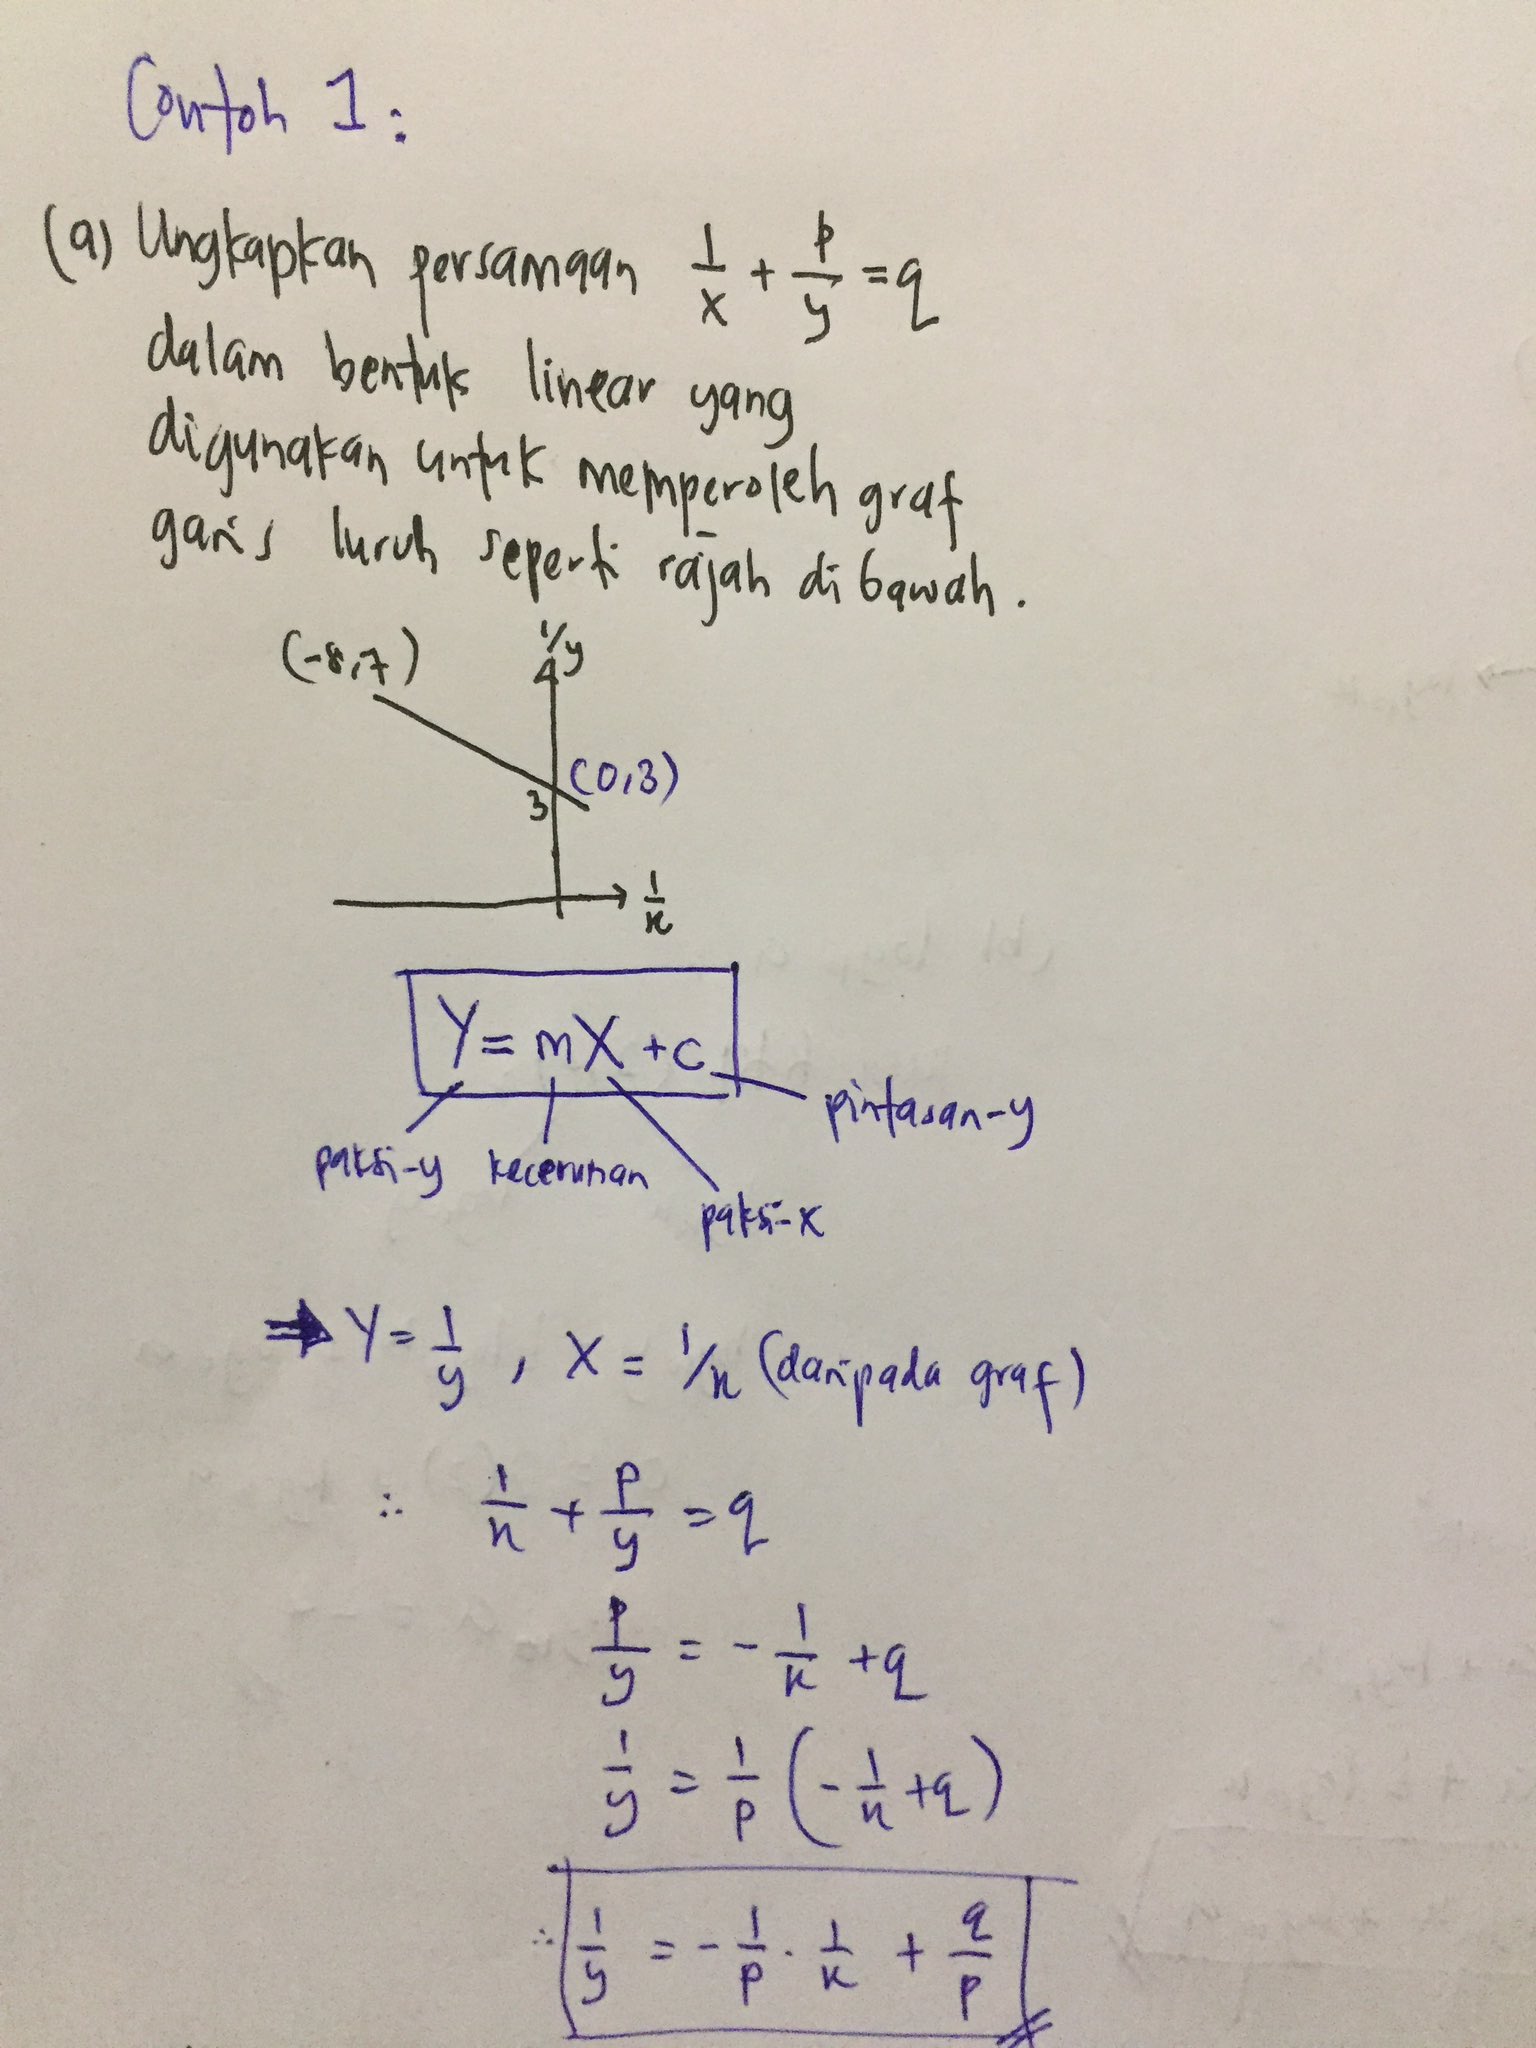 Contoh 1:
(a) Ungkapkan persamaan 1/x + p/y = q
dalam bentuk linear yang
digunakan untuk memperoleh graf
garis lurus seperti rajah di bawah.
1/y
(-8,7)
(0,3)
3
1/x
Y = mX + c
pintasan-y
paksi-y kecerunan
paksi-x
⇒ Y = 1/y , X = 1/x (daripada graf)
∴ 1/x + p/y = q
p/y = - 1/x + q
1/y = 1/p (- 1/x + q)
∴ 1/y = - 1/p · 1/x + q/p